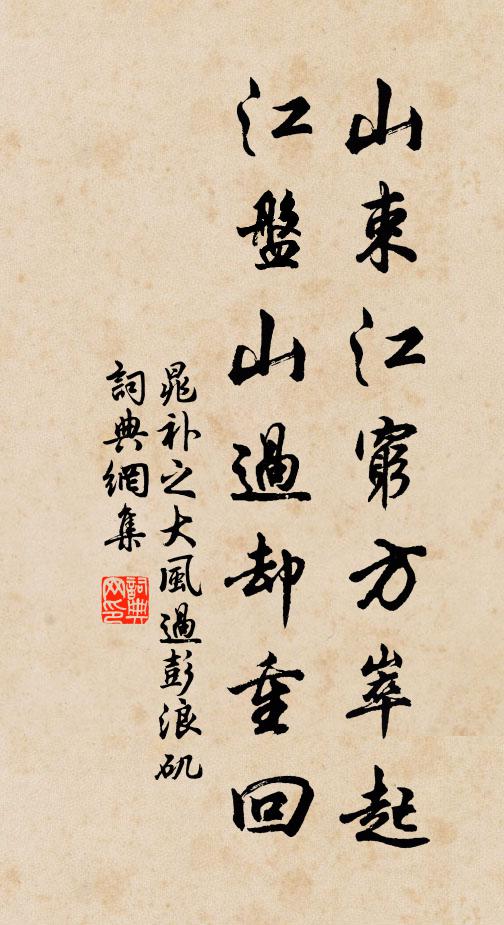 山束江窮方崒起
江盤山過却重回
晁补之大風過彭浪矶
詞典網集
詞典
网印